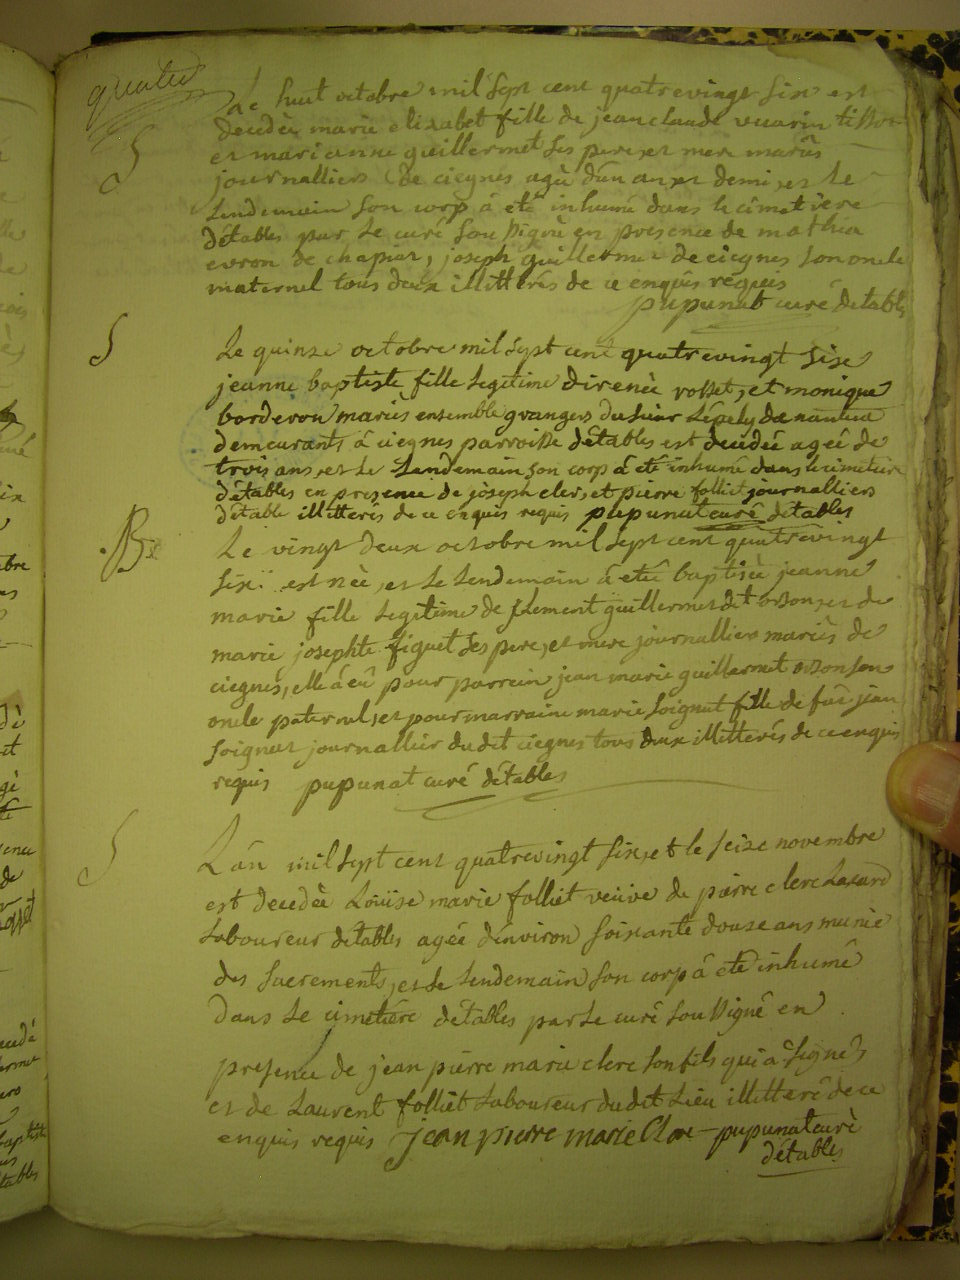 quatre
S
Le huit octobre mil sept cent quatrevingt six est
decedée marie elizabet fille de jean claude vuarin tissot
et marianne guillermet ses pere et mere mariés
journalliers de ciegnes agée d'un an et demi, et le
lendemain son corp á eté inhumé dans le cimetiere
détables par le curé soussigné en presence de mathia
evron de chapiat, joseph guillermet de ciegnes son oncle
maternel tous deux illittérés de ce enquis requis
pupunat curé détables
S
Le quinze octobre mil sept cent quatrevingt sise
jeanne baptiste fille legitime direnée rosset, et monique
borderon mariés ensemble grangers du sieur Lépely de nantua
demeurants á ciegnes parroisse détables est decedée agée de
trois ans, et le Lendemain son corp á eté inhumé dans le cimetiere
détables en presence de joseph clerc, et pierre folliet journalliers
détable illitterés de ce enquis requis pupunat curé détables
B
Le vingt deux octobre mil sept cent quatrevingt
six est née, et le lendemain á etée baptisée jeanne
marie fille legitime de flement guillermet dit orson, et de
marie josephte figuet ses pere, et mere journalliers mariés de
ciegnes, elle á eu pour parrein jean marie guillermet orson son
oncle paternel, et pour marraine marie soignet fille de fue jean
soignet journallier dudit ciegnes tous deux illitterés de ce enquis
requis pupunat curé détables
S
L'an mil sept cent quatrevingt six, et le seize novembre
est decedée Loüise marie folliet veüve de pierre clerc Lazard
Laboureur détables agée d'environ soixante douze ans munie
des sacrements, et le lendemain son corp á eté inhumé
dans le cimetiére détables par le curé soussigné en
presence de jean pierre marie clerc son fils qui á signé
et de Laurent folliet Laboureur dudit Lieu illitteré de ce
enquis requis jean pierre marie Clerc pupunat curé
détables